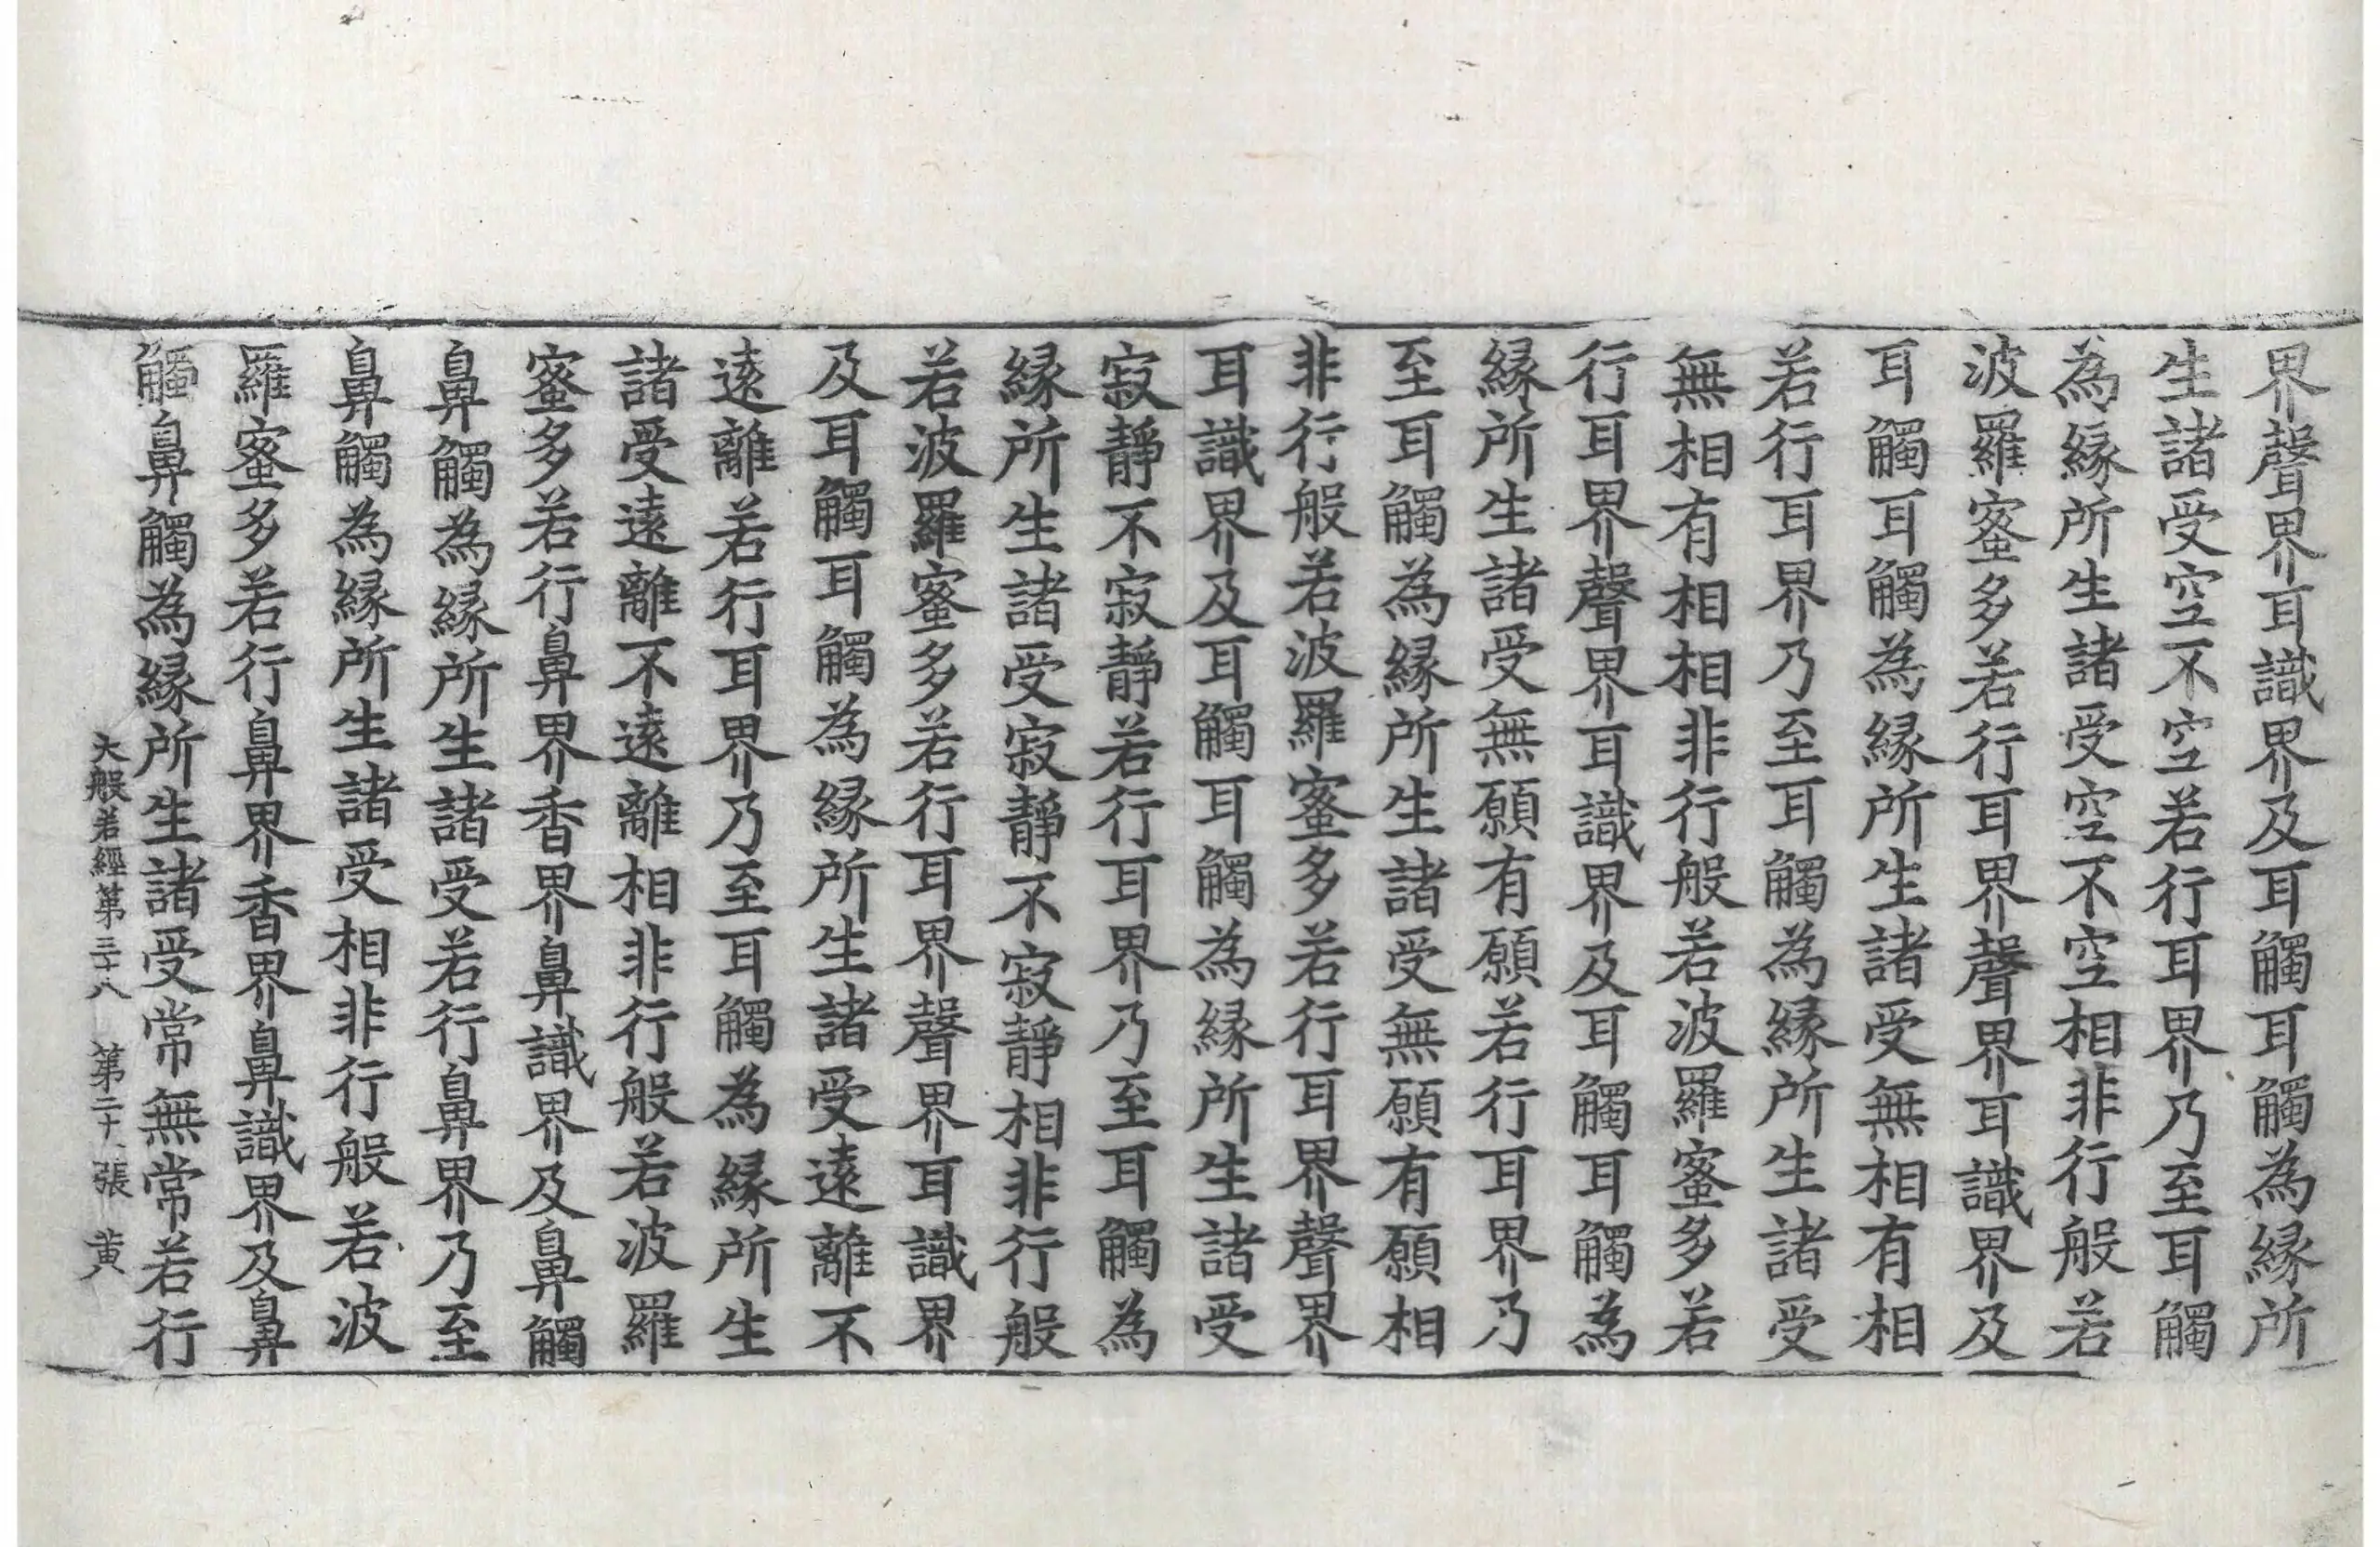 界聲界耳識界及耳觸耳觸為緣所
生諸受空不空若行耳界乃至耳觸
為緣所生諸受空不空相非行般若
波羅蜜多若行耳界聲界耳識界及
耳觸耳觸為緣所生諸受無相有相
若行耳界乃至耳觸為緣所生諸受
無相有相相非行般若波羅蜜多若
行耳界聲界耳識界及耳觸耳觸為
緣所生諸受無願有願若行耳界乃
至耳觸為緣所生諸受無願有願相
非行般若波羅蜜多若行耳界聲界
耳識界及耳觸耳觸為緣所生諸受
寂靜不寂靜若行耳界乃至耳觸為
緣所生諸受寂靜不寂靜相非行般
若波羅蜜多若行耳界聲界耳識界
及耳觸耳觸為緣所生諸受遠離不
遠離若行耳界乃至耳觸為緣所生
諸受遠離不遠離相非行般若波羅
蜜多若行鼻界香界鼻識界及鼻觸
鼻觸為緣所生諸受若行鼻界乃至
鼻觸為緣所生諸受相非行般若波
羅蜜多若行鼻界香界鼻識界及鼻
觸鼻觸為緣所生諸受常無常若行
大般若經第三十八 第二十張 黃